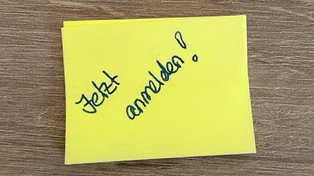 Jetzt
anmelden!